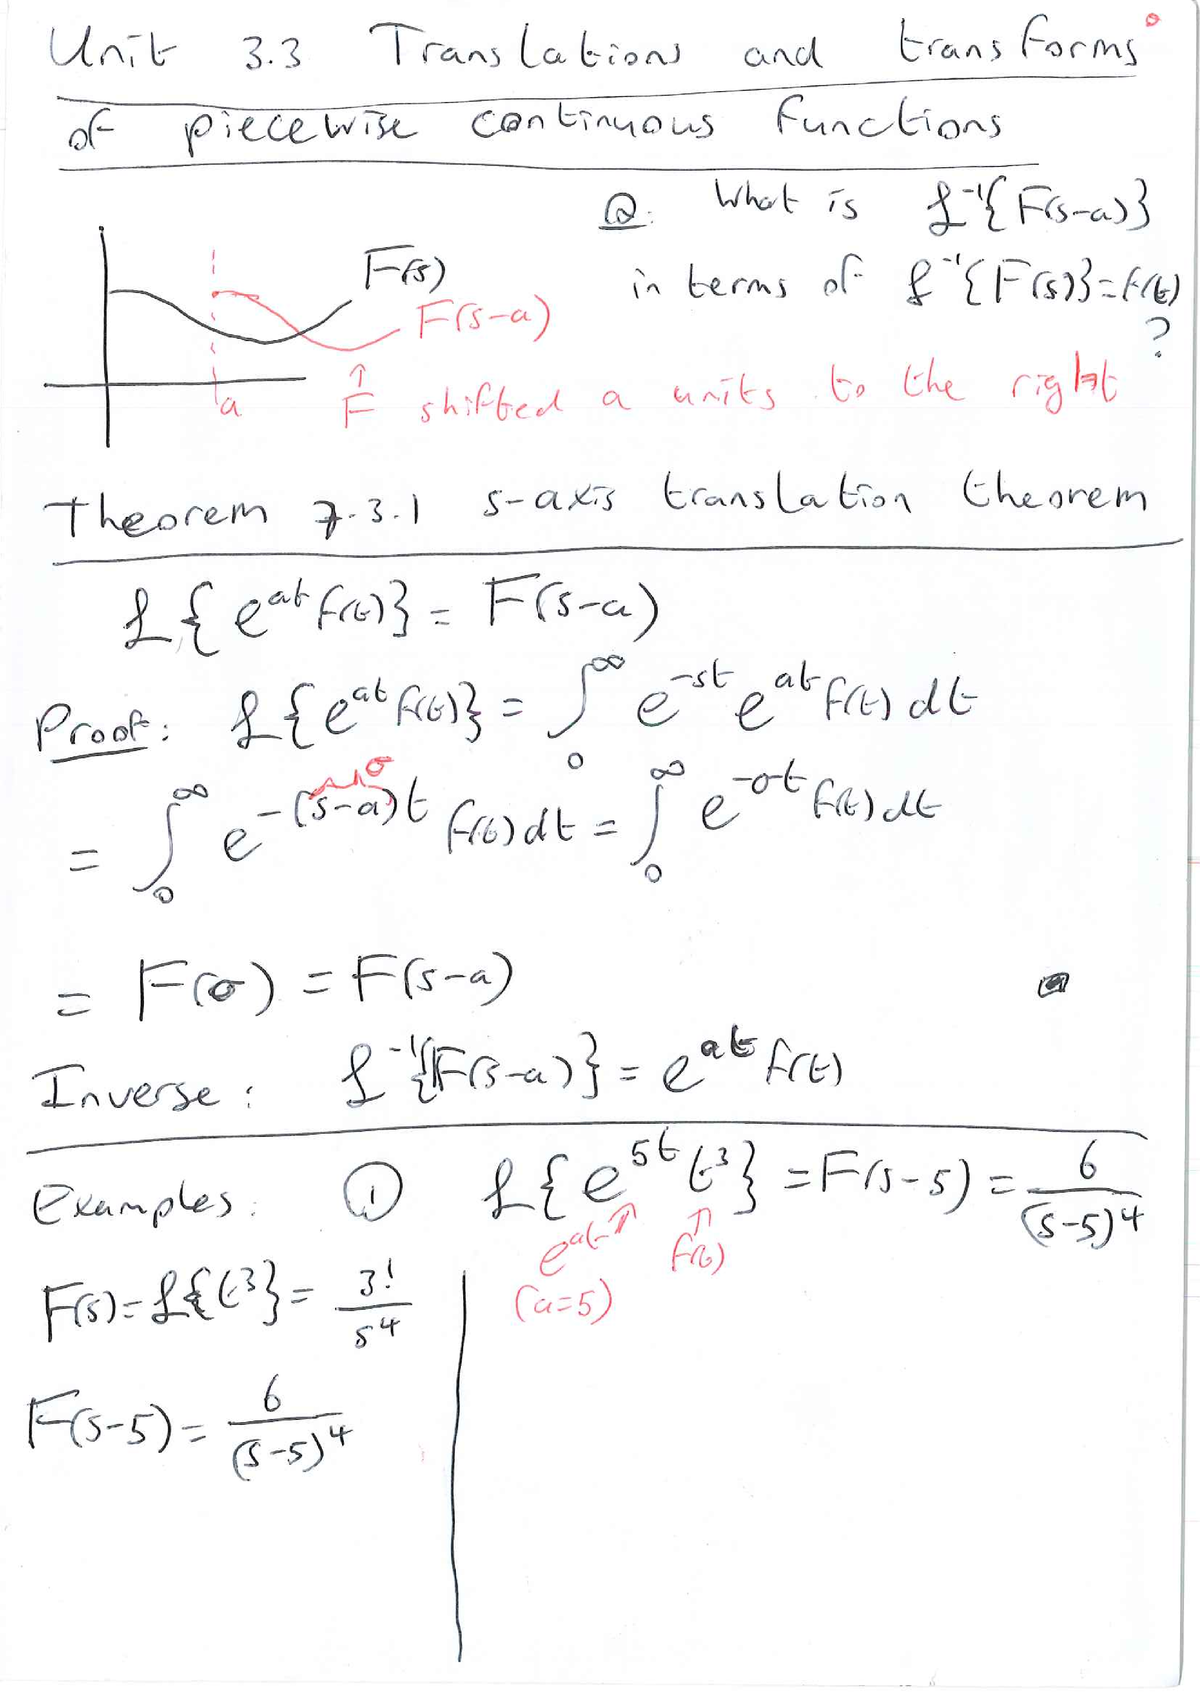 Unit 3.3 Translations and transforms
of piecewise continuous functions
Q: What is ℒ⁻¹{F(s-a)}
in terms of ℒ⁻¹{F(s)}=f(t)
?
F(s)
F(s-a)
a
↑
F shifted a units to the right
Theorem 7.3.1 s-axis translation theorem
ℒ{e^{at} f(t)} = F(s-a)
Proof: ℒ{e^{at} f(t)} = ∫₀^∞ e^{-st} e^{at} f(t) dt
σ
= ∫₀^∞ e^{-(s-a)t} f(t) dt = ∫₀^∞ e^{-σt} f(t) dt
= F(σ) = F(s-a)
Inverse: ℒ⁻¹{F(s-a)} = e^{at} f(t)
Examples: ① ℒ{e^{5t} t³} = F(s-5) = 6/(s-5)⁴
e^{at} ↑ ↑ f(t)
(a=5)
F(s) = ℒ{t³} = 3!/s⁴
F(s-5) = 6/(s-5)⁴